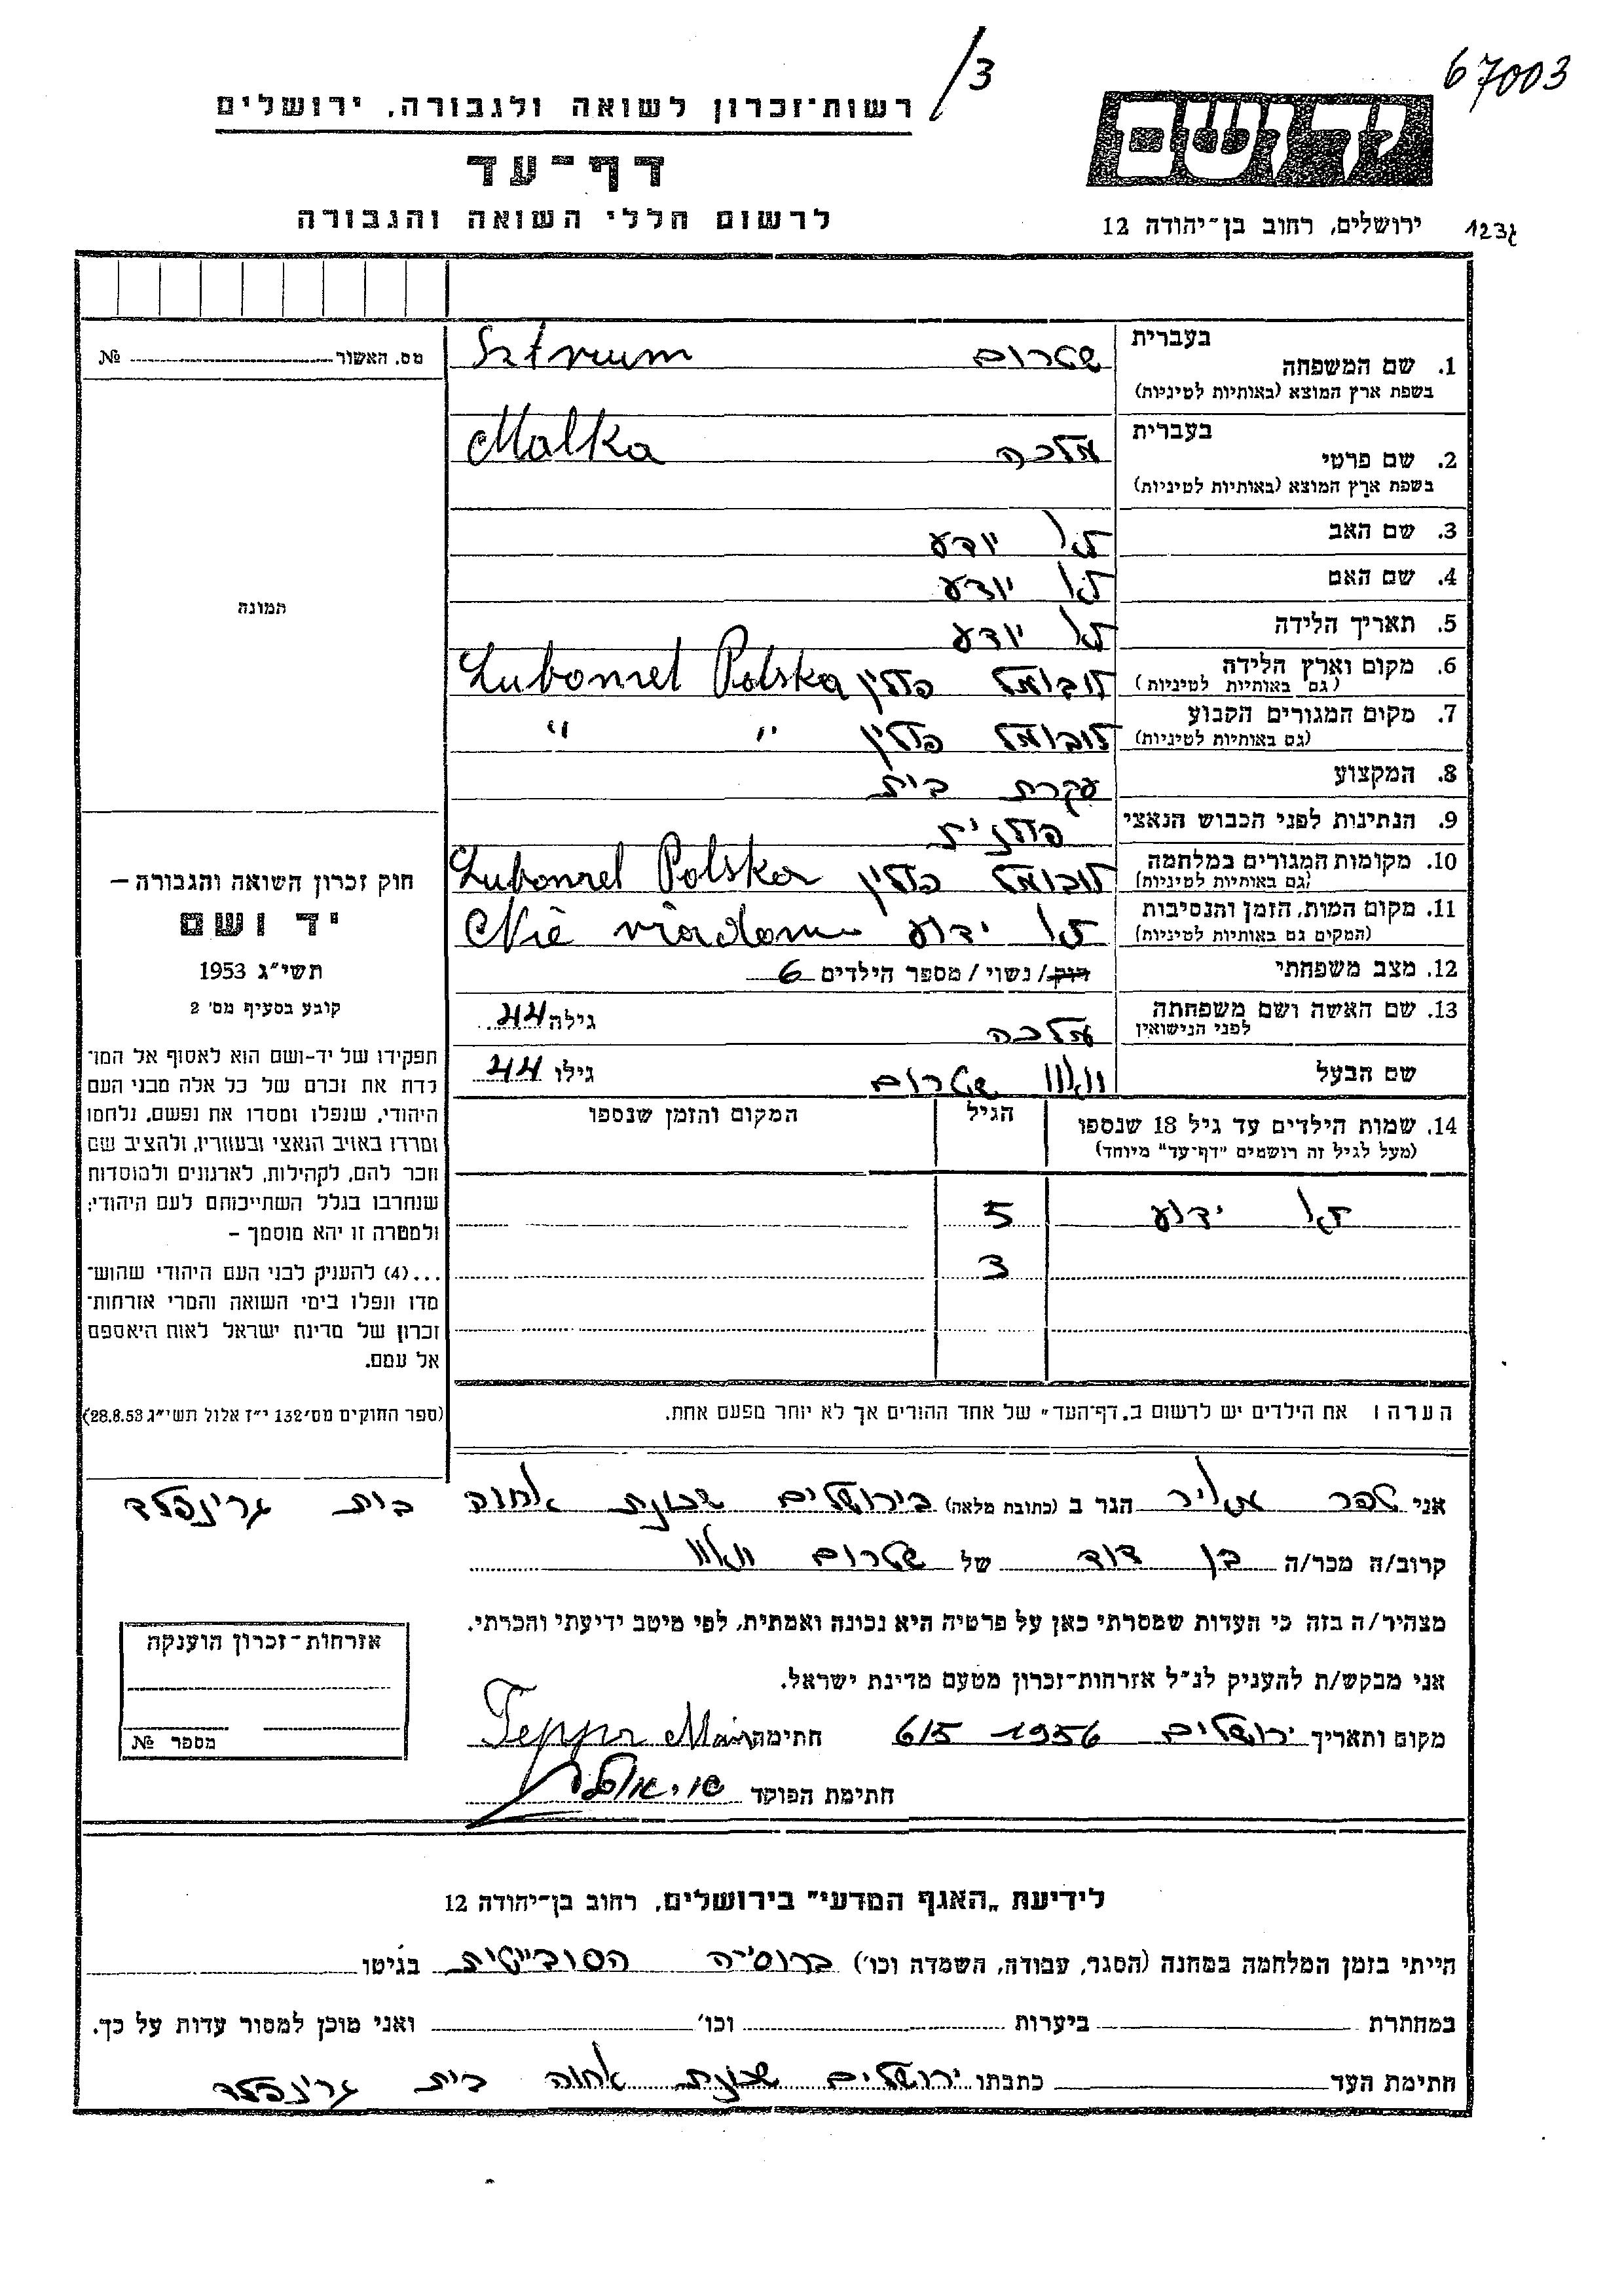 /3
67003
רשות־זכרון לשואה ולגבורה, ירושלים
ידושם
דף־עד
לרשום חללי השואה והגבורה
ירושלים, רחוב בן־יהודה 12
123ג
מס. האשור № 
בעברית
1. שם המשפחה שטרום Sztrum
בשפת ארץ המוצא (באותיות לטיניות)
בעברית
2. שם פרטי מלכה Malka
בשפת ארץ המוצא (באותיות לטיניות)
3. שם האב לא יודע
4. שם האם לא יודע
תמונה
5. תאריך הלידה לא יודע
6. מקום וארץ הלידה לובומל פולין Lubomel Polska
(גם באותיות לטיניות)
7. מקום המגורים הקבוע לובומל פולין " "
(גם באותיות לטיניות)
8. המקצוע עקרת בית
9. הנתינות לפני הכבוש הנאצי פולנית
10. מקומות המגורים במלחמה לובומל פולין Lubomel Polska
(גם באותיות לטיניות)
11. מקום המות, הזמן והנסיבות לא ידוע Nie wiadomo
(המקום גם באותיות לטיניות)
12. מצב משפחתי רווק / נשוי / מספר הילדים 6
13. שם האשה ושם משפחתה מלכה גילה 44
לפני הנישואין
שם הבעל שטרום גילו 44
14. שמות הילדים עד גיל 18 שנספו הגיל המקום והזמן שנספו
(מעל לגיל זה רושמים "דף־עד" מיוחד)
לא ידוע 5
3
חוק זכרון השואה והגבורה –
יד ושם
תשי"ג 1953
קובע בסעיף מס' 2
תפקידו של יד-ושם הוא לאסוף אל המו־
לדת את זכרם של כל אלה מבני העם
היהודי, שנפלו ומסרו את נפשם, נלחמו
ומרדו באויב הנאצי ובעוזריו, ולהציב שם
וזכר להם, לקהילות, לארגונים ולמוסדות
שנחרבו בגלל השתייכותם לעם היהודי;
ולמטרה זו יהא מוסמך –
...(4) להעניק לבני העם היהודי שהוש־
מדו ונפלו בימי השואה והמרי אזרחות־
זכרון של מדינת ישראל לאות היאספם
אל עמם.
(ספר החוקים מס' 132 י"ז אלול תשי"ג 28.8.53)
הערה ו את הילדים יש לרשום ב„דף־העד" של אחד ההורים אך לא יותר מפעם אחת.
אני טפר מאיר הגר ב (כתובת מלאה) בירושלים שכונת אחוה בית גרינפלד
קרוב/ה מכר/ה בן דוד של שטרום
מצהיר/ה בזה כי העדות שמסרתי כאן על פרטיה היא נכונה ואמתית, לפי מיטב ידיעתי והכרתי.
אני מבקש/ת להעניק לנ"ל אזרחות־זכרון מטעם מדינת ישראל.
מקום ותאריך ירושלים 1956 6/5 חתימה Tepper
חתימת הפוקד
אזרחות־זכרון הוענקה
מספר №
לידיעת „האגף המדעי" בירושלים, רחוב בן־יהודה 12
הייתי בזמן המלחמה במחנה (הסגר, עבודה, השמדה וכו') ברוסיה הסובייטית בגיטו
במחתרת ביערות וכו' ואני מוכן למסור עדות על כך.
חתימת העד כתבתו ירושלים שכונת אחוה בית גרינפלד